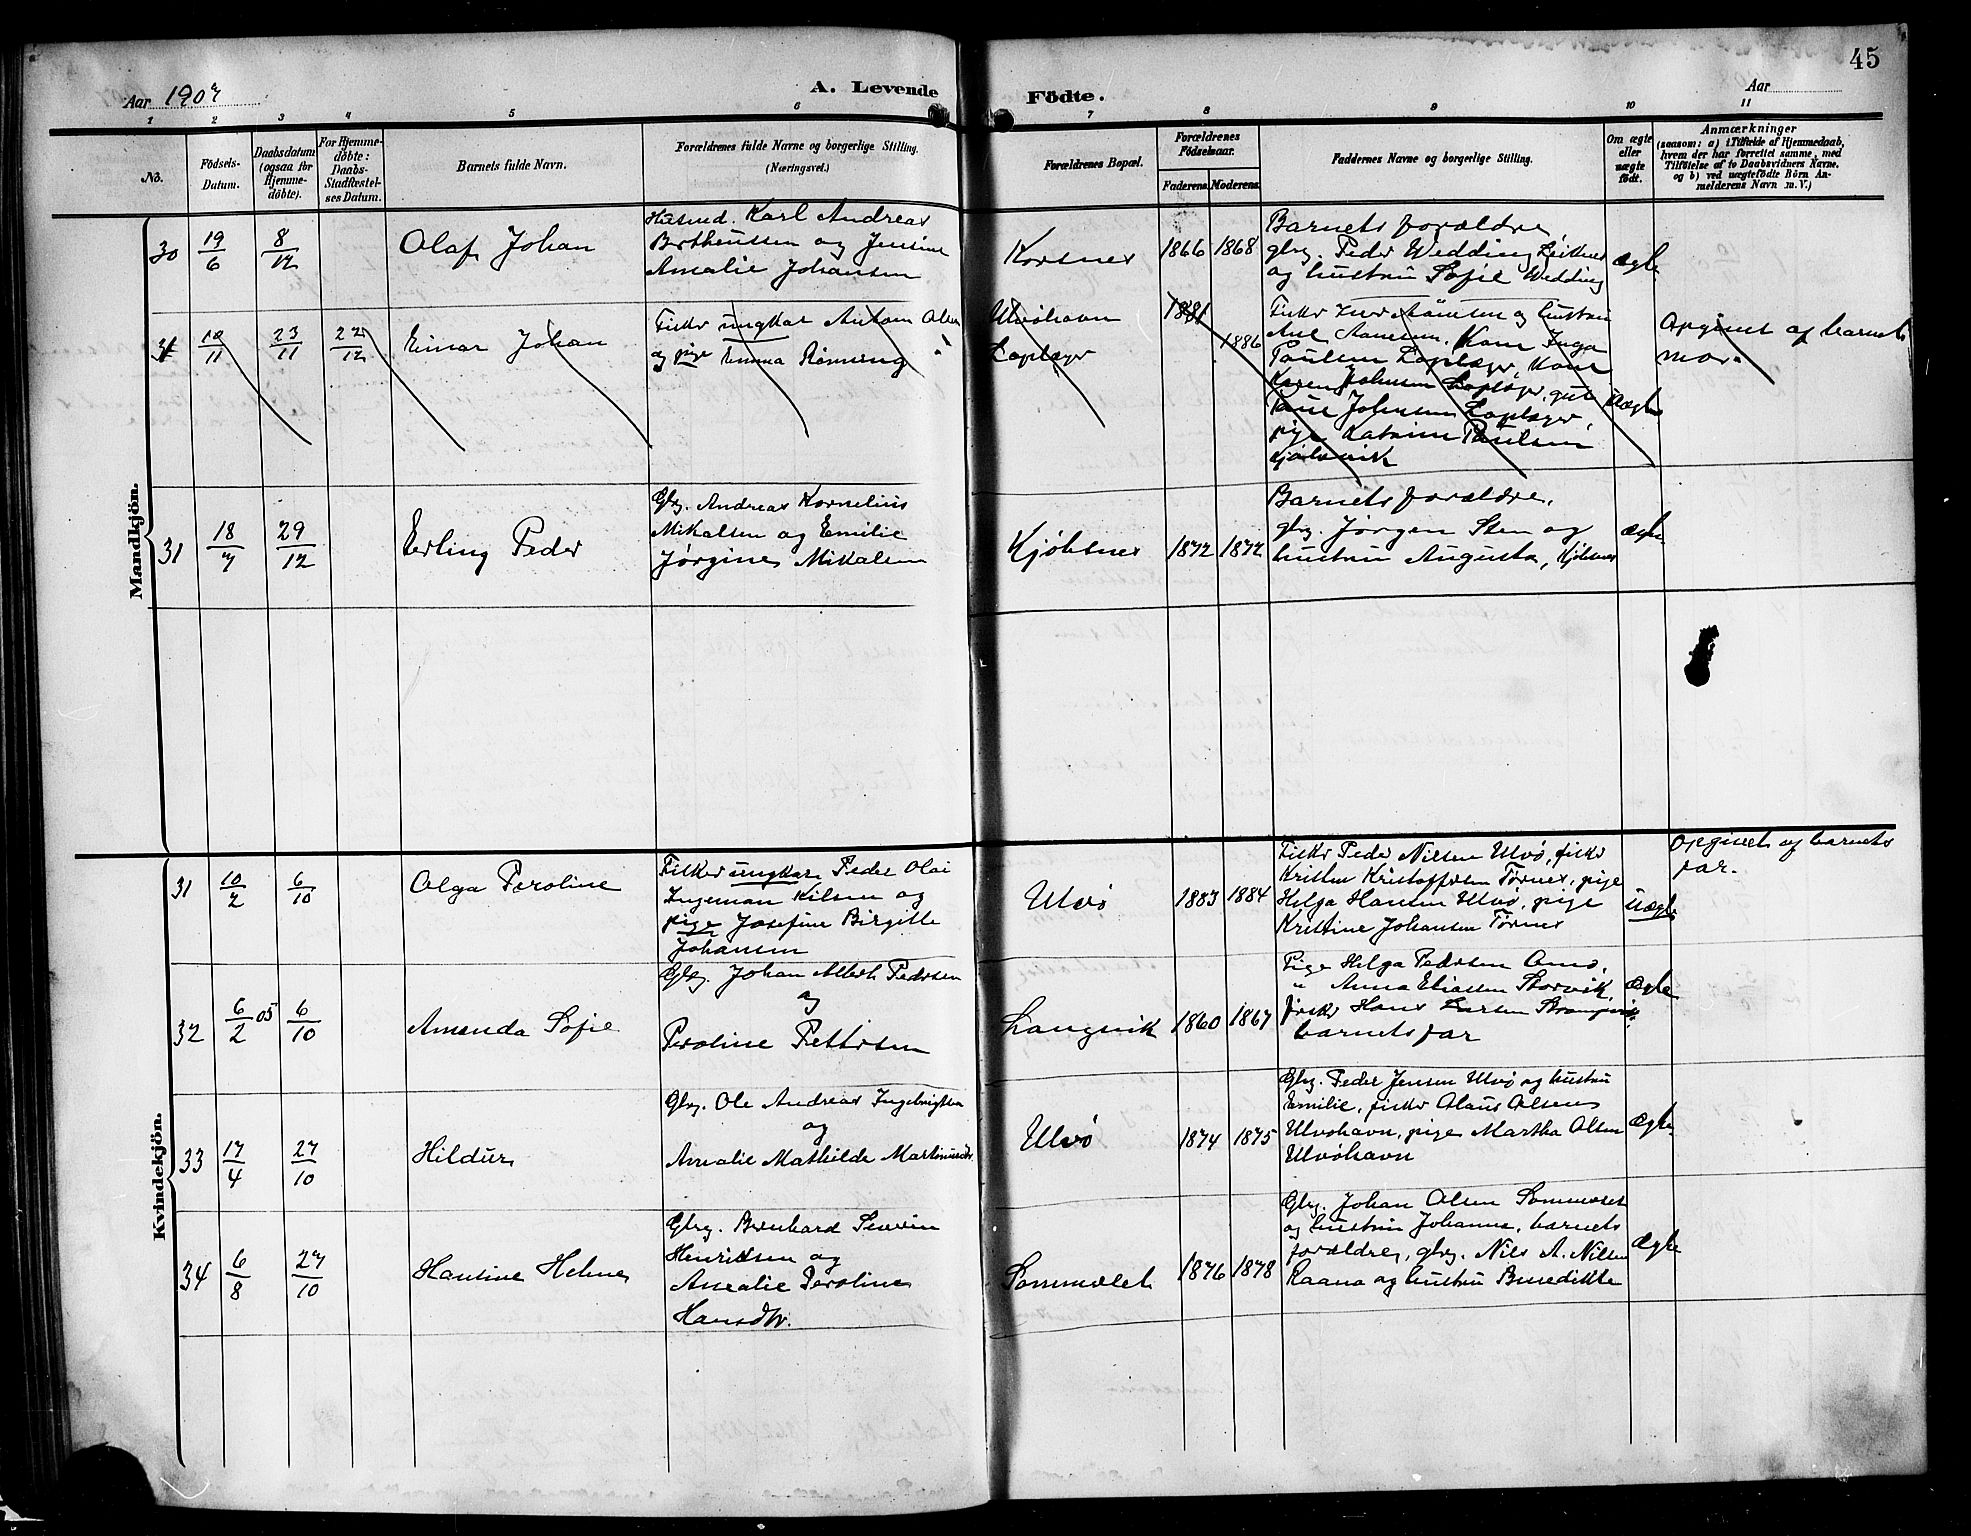 45
Aar 1907
A. Levende Födte.
Aar
1 2 3 4 5 6 7 8 9 10 11
No.
Födsels-Datum.
Daabsdatum (ogsaa for Hjemme-döbte).
For Hjemme-döbte: Daabs-Stadfæstel-ses Datum.
Barnets fulde Navn.
Forældrenes fulde Navne og borgerlige Stilling. (Næringsvei.)
Forældrenes Bopæl.
Forældrenes Födselsaar.
Faderens. Moderens.
Faddernes Navne og borgerlige Stilling.
Om ægte eller uægte födt.
Anmærkninger
(saasom: a) i Tilfælde af Hjemmedaab,
hvem der har forrettet samme, med
Tilföielse af to Daabsvidners Navne,
og b) ved uægtefödte Börn An-
melderens Navn m. V.)
Mandkjön.
30 19/6 8/12 Olaf Johan
Husmd. Karl Andreas
Bertheussen og Jensine
Amalie Johansen
Korsnes 1866 1868
Barnets forældre,
gbrg. Peder Wedding Leiknes
og hustru Sofie Wedding
ægte
31 18/11 23/11 22/12 Einar Johan
Fisker ungkar Antom Olsen
og pige Emma Rønning
Ulvöhavn
Laplæger
1881 1886
Fisker Amsen og hustru
Ane Aanesen. Kone Inga
Paulsen Laplæger, Kone
Karen Johnsen Laplæger, gut
Johnsen Laplæger,
pige Katrine Paulsen
Kjölsvik
uægte
Opgivet af barnets
mor.
31 18/7 29/12 Erling Peder
Gbrg. Andreas Kornelius
Mikalsen og Emilie
Jørgine Mikalsen
Kjöbsnes 1872 1872
Barnets forældre,
gbrg. Jørgen Sten og
hustru Augusta, Kjöbsnes
ægte
Kvindekjön.
31 10/2 6/10 Olga Peroline
Fisker ungkar Peder Olai
Ingeman Nilsen og
pige Josefine Birgitte
Johansen
Ulvö 1883 1884
Fisker Peder Nilsen Ulvö, fisker
Kristen Kristoffersen Törnes, pige
Helga Hansen Ulvö, pige
Kristine Johansen Törnes
uægte
Opgivet af barnets
far.
32 6/2 05 6/10 Amanda Sofie
Gbrg. Johan Albert Pedersen
og
Peroline Pettersen
Langvik 1860 1867
Pige Helga Pedersen
" Anna Eliassen Storvik,
fisker Hans Larsen
barnets far
ægte
33 17/4 27/10 Hildur
Gbrg. Ole Andreas Ingebrigtsen
og
Amalie Mathilde Martinusdtr.
Ulvö 1874 1875
Gbrg. Peder Jensen Ulvö og hustru
Emilie, fisker Olaus Olsen
Ulvöhavn, pige Martha Olsen
Ulvöhavn
ægte
34 6/8 27/10 Hantine Helene
Gbrg. Bernhard Severin
Henriksen og
Amalie Peroline
Hansdtr.
Sommeset 1876 1878
Gbrg. Johan Olsen Sommeset
og hustru Johanne, barnets
forældre, gbrg. Nils A. Nilsen
Raana og hustru Benedikte
ægte